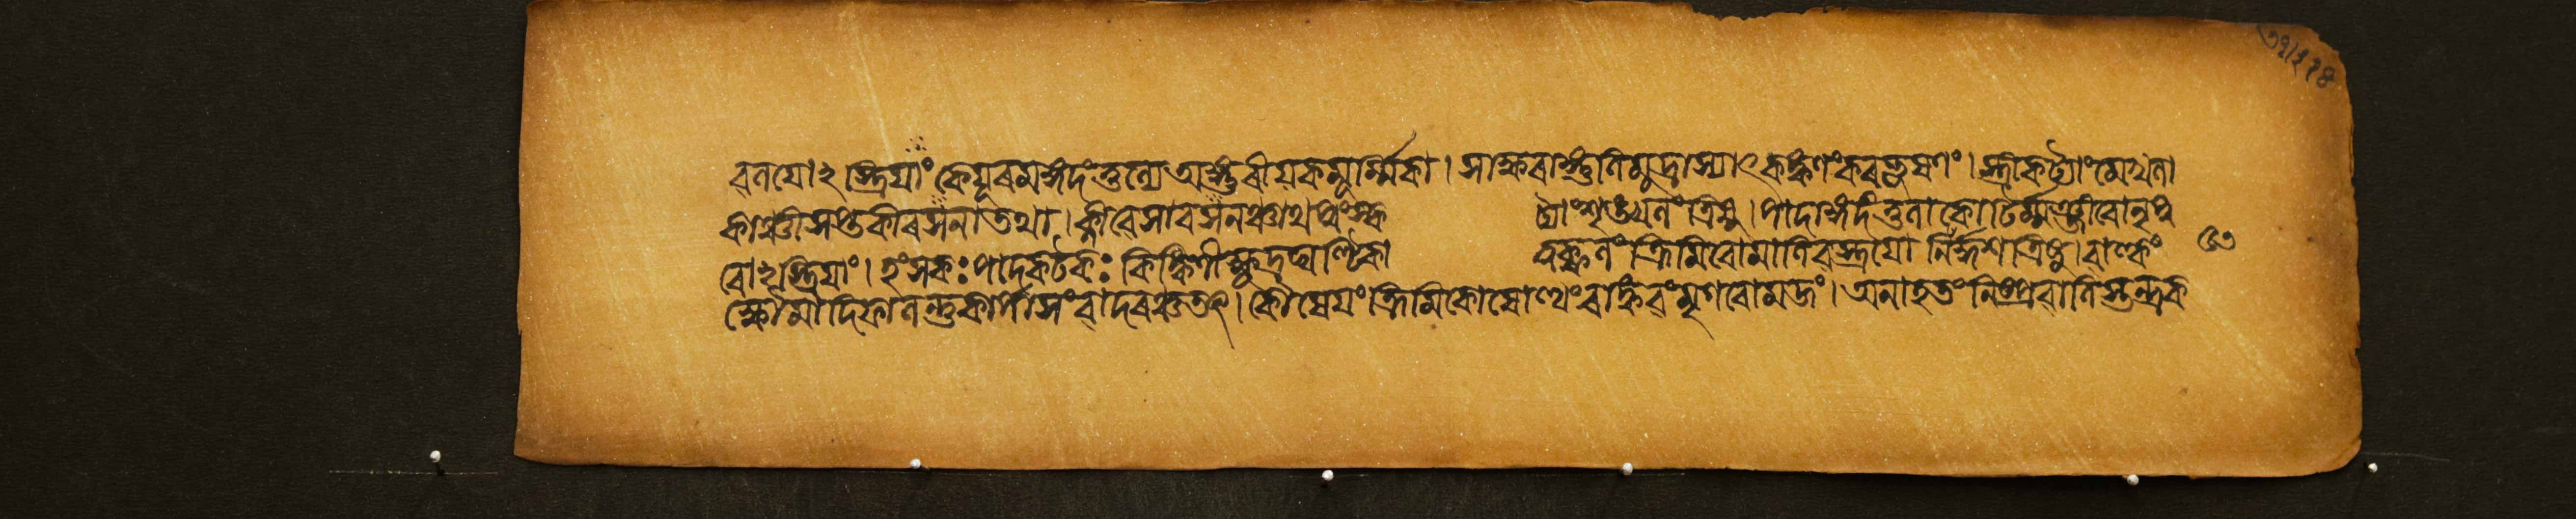 ৱলযোঽস্ত্রিযাং কেয়ূৰমঙ্গদংতুল্যে অঙ্গুৰীয়কমূৰ্ম্মিকা। সাক্ষৰাঙ্গুলিমুদ্ৰাস্যাৎকঙ্কণংকৰভূষণং। স্ত্ৰীকট্যাংমেখলা
কাঞ্চীসপ্তকীৰসনাতথা। ক্লীৱেসাৰসনঞ্চাথপুংস্ক ট্যাংশৃঙ্খলংত্ৰিষু। পাদাঙ্গদংতুলাকোটিৰ্ম্মঞ্জীৰোনূপু
ৰোঽস্ত্ৰিযাং। হংসকঃ পাদকটকঃ কিঙ্কিণীক্ষুদ্ৰঘণ্টিকা ত্বক্ফলংক্ৰিমিৰোমাণিৱস্ত্ৰযোনিৰ্দ্দশত্ৰিষু। ৱাল্কং
ক্ষৌমাদিফালন্তুকাৰ্পাসংৱাদৰঞ্চতৎ। কৌষেযংক্ৰিমিকোষোত্থংৰাঙ্কৱংমৃগৰোমজং। অনাহতংনিষ্প্ৰৱাণিস্তন্ত্ৰক